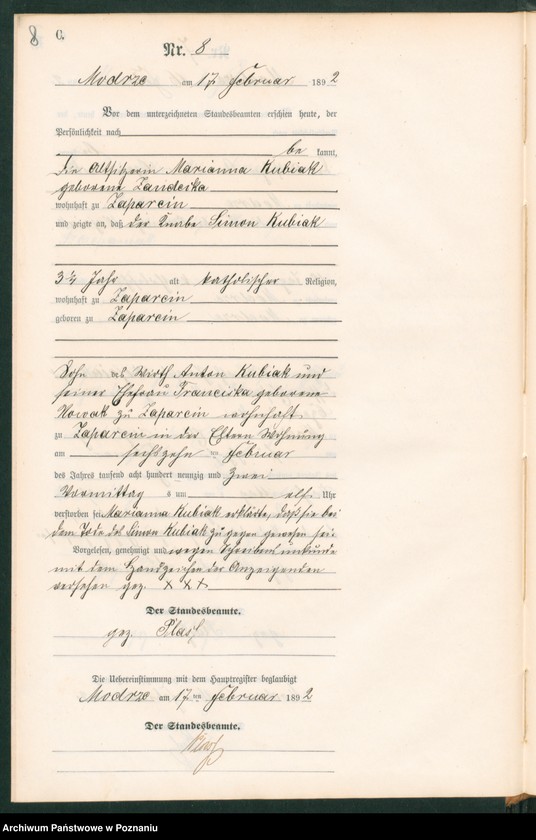 8
C.
Nr. 8
Modrze am 17. Februar 1892
Vor dem unterzeichneten Standesbeamten erschien heute, der
Persönlichkeit nach
be kannt,
die Altsitzerin Marianna Kubiak
geborene
wohnhaft zu Zaparcin
und zeigte an, daß der Knabe Simon Kubiak
3 Jahr alt katholischer Religion,
wohnhaft zu Zaparcin
geboren zu Zaparcin
Sohn des Wirth Anton Kubiak und
seiner Ehefrau Franciska geborene
Nowak zu Zaparcin wohnhaft
zu Zaparcin in der Eltern Wohnung
am sechszehn ten Februar
des Jahres tausend acht hundert neunzig und zwei
Vormittag s um elf Uhr
verstorben sei Marianna Kubiak erklärte, daß sie bei
dem Tode des Simon Kubiak zugegen gewesen sei
Vorgelesen, genehmigt und wegen Schreibens unkunde
mit dem Handzeichen der Anzeigenden
versehen gez. X X X
Der Standesbeamte.
gez.
Die Uebereinstimmung mit dem Hauptregister beglaubigt
Modrze am 17. ten Februar 1892
Der Standesbeamte.
Archiwum Państwowe w Poznaniu